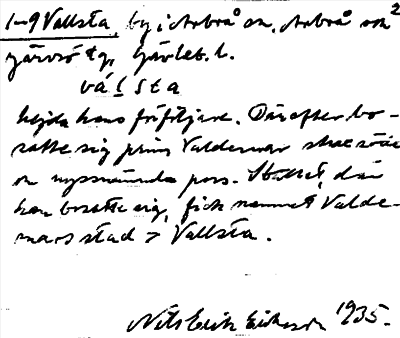 1-9 Vallsta, by i Arbrå sn, Arbrå och 2
Järvsö tg, Gävleb. l.
vál̥sta
hejda hans förföljare. Därefter bo-
satte sig prins Valdemar
en nyssnämnda pers. Stället, där
han bosatte sig, fick namnet Valde-
mars stad > Vallsta.
Nils Erik Eriksson 1935.